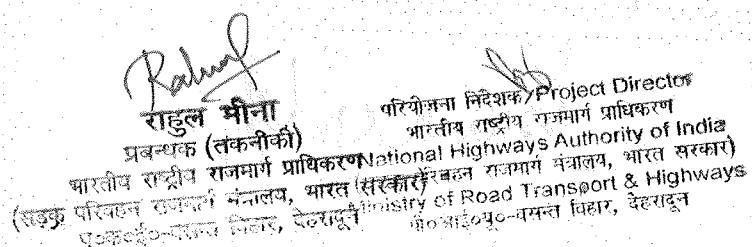 Rahul
राहुल मीना
प्रबन्धक (तकनीकी)
भारतीय राष्ट्रीय राजमार्ग प्राधिकरण
(सड़क परिवहन राजमार्ग मंत्रालय, भारत सरकार)
प०का०ई०-वसन्त विहार, देहरादून
परियोजना निदेशक/Project Director
भारतीय राष्ट्रीय राजमार्ग प्राधिकरण
National Highways Authority of India
परिवहन राजमार्ग मंत्रालय, भारत सरकार)
Ministry of Road Transport & Highways
पी०आई०यू०-वसन्त विहार, देहरादून